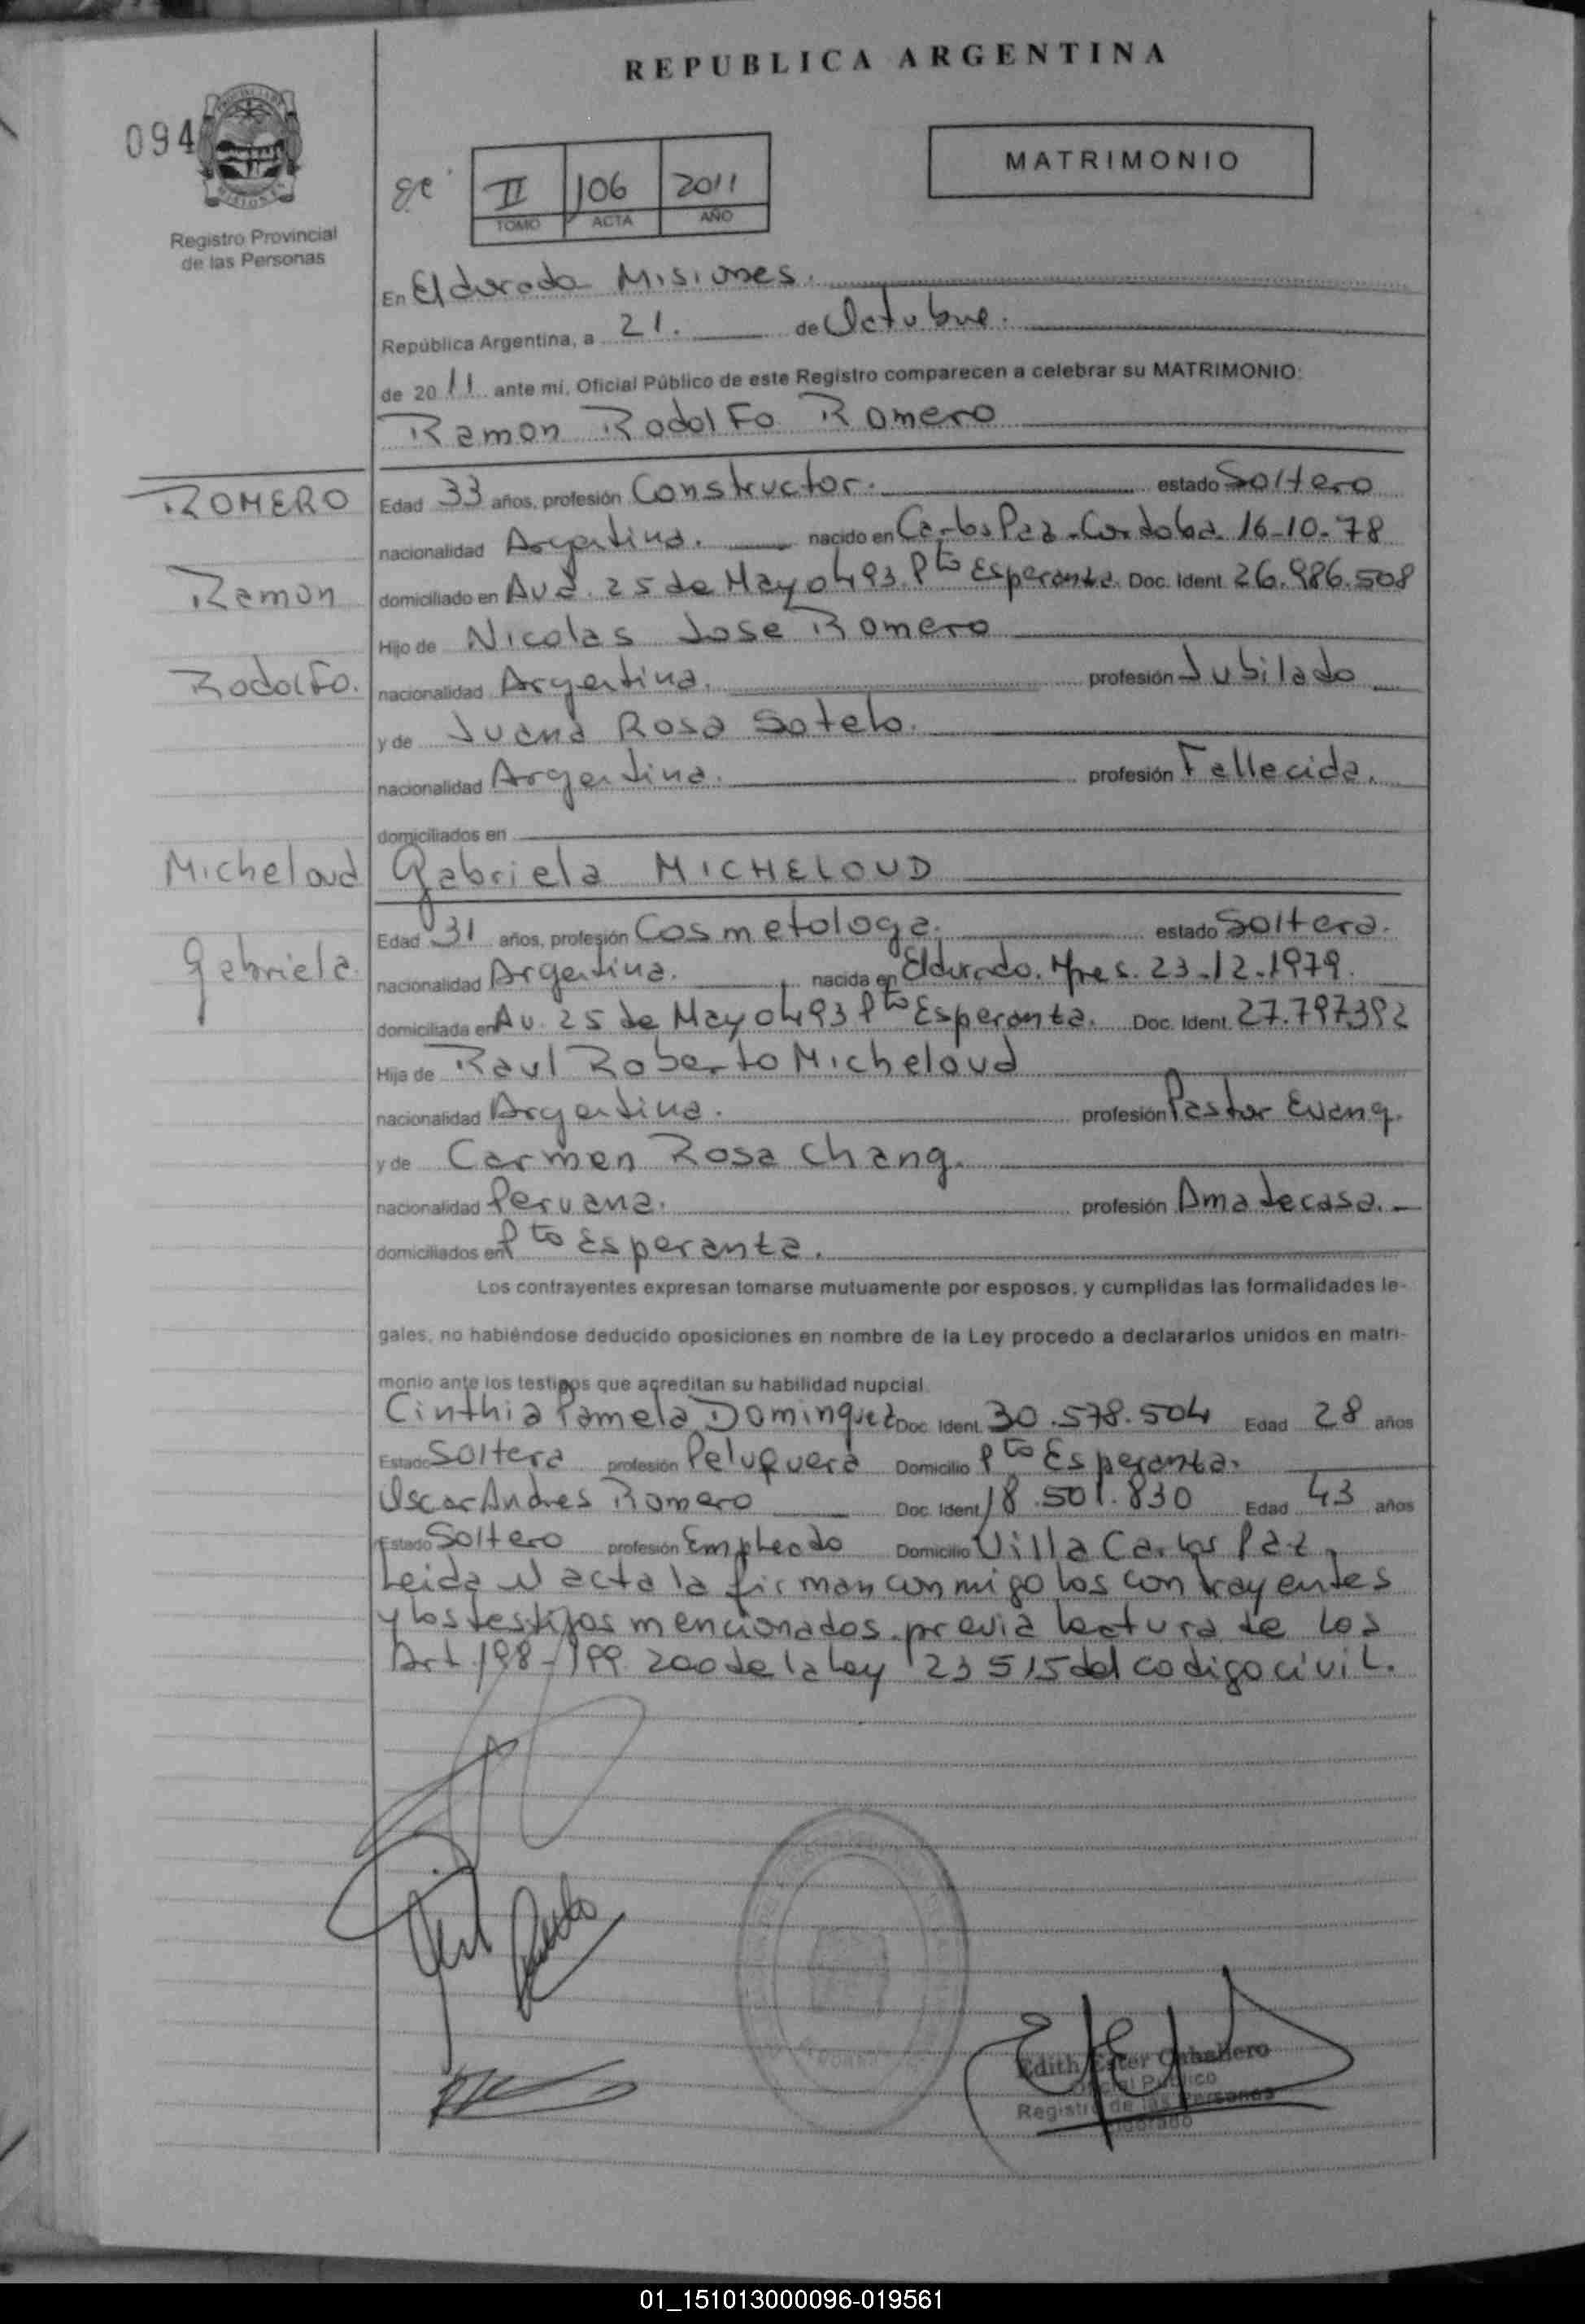 REPUBLICA ARGENTINA
094
MATRIMONIO
II 106 2011
TOMO ACTA AÑO
Registro Provincial
de las Personas
En Eldorado Misiones.
República Argentina, a 21. de Octubre.
de 2011 ante mi, Oficial Público de este Registro comparecen a celebrar su MATRIMONIO:
Ramon Rodolfo Romero
ROMERO
Edad 33 años, profesión Constructor. estado Soltero
nacionalidad Argentina. nacido en Carlos Paz-Cordoba. 16-10-78
Ramon
domiciliado en Avd. 25 de Mayo 493. Pto Esperanza. Doc. Ident. 26.986.508
Hijo de Nicolas Jose Romero
Rodolfo.
nacionalidad Argentina. profesión Jubilado
y de Juana Rosa Sotelo.
nacionalidad Argentina. profesión Fallecida.
domiciliados en
Micheloud
Gabriela MICHELOUD
Edad 31 años, profesión Cosmetologa. estado Soltera.
Gabriela.
nacionalidad Argentina. nacida en Eldorado. Mnes. 23-12-1979.
domiciliada en Av. 25 de Mayo 493 Pto Esperanza. Doc. Ident. 27.797392
Hija de Raul Roberto Micheloud
nacionalidad Argentina. profesión Pastor Evang.
y de Carmen Rosa Chang.
nacionalidad Peruana. profesión Ama de casa.
domiciliados en Pto Esperanza.
Los contrayentes expresan tomarse mutuamente por esposos, y cumplidas las formalidades le-
gales, no habiéndose deducido oposiciones en nombre de la Ley procedo a declararlos unidos en matri-
monio ante los testigos que acreditan su habilidad nupcial.
Cinthia Pamela Dominguez Doc. Ident. 30.578.504 Edad 28 años
Estado Soltera profesión Peluquera Domicilio Pto Esperanza.
Oscar Andres Romero Doc. Ident. 18.501.830 Edad 43 años
Estado Soltero profesión Empleado Domicilio Villa Carlos Paz.
Leida el acta la firman conmigo los contrayentes
y los testigos mencionados. previa lectura de los
Art. 198-199. 200 de la ley 23515 del codigo civil.
Edith Ester Caballero
Oficial Público
Registro de las Personas
Eldorado
01_151013000096-019561